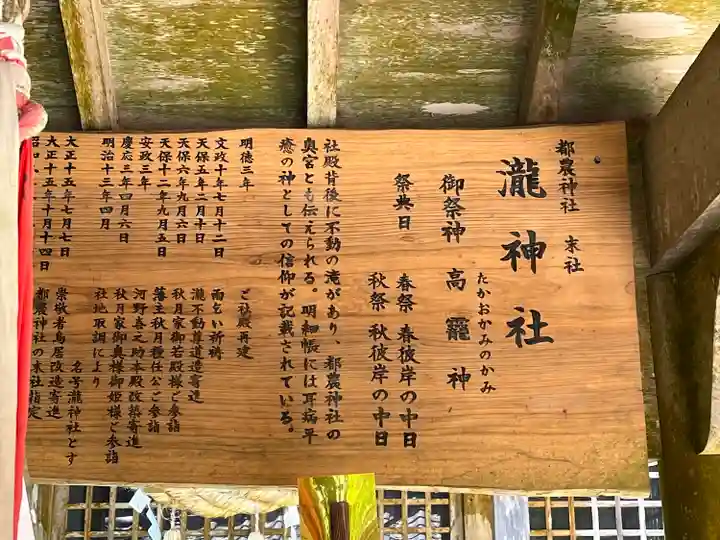 都農神社 末社
瀧神社
御祭神 高龗神
たかおかみのかみ
祭典日 春祭 春彼岸の中日
秋祭 秋彼岸の中日
社殿背後に不動の滝があり、都農神社の
奥宮とも伝えられる。明細帳には耳病平
癒の神としての信仰が記載されている。
明徳三年 ご社殿再建
文政十年七月十二日 雨乞い祈祷
天保五年二月十日 瀧不動尊道造寄進
天保六年九月六日 秋月家御若殿様ご参詣
天保十二年九月五日 藩主秋月種任公ご参詣
安政三年 河野喜之助本殿改築寄進
慶応三年四月六日 秋月家御奥様御姫様ご参詣
明治十三年四月 社地取調により
名号瀧神社とす
大正十五年七月七日 崇敬者鳥居改造寄進
大正十五年十月十四日 都農神社の末社指定